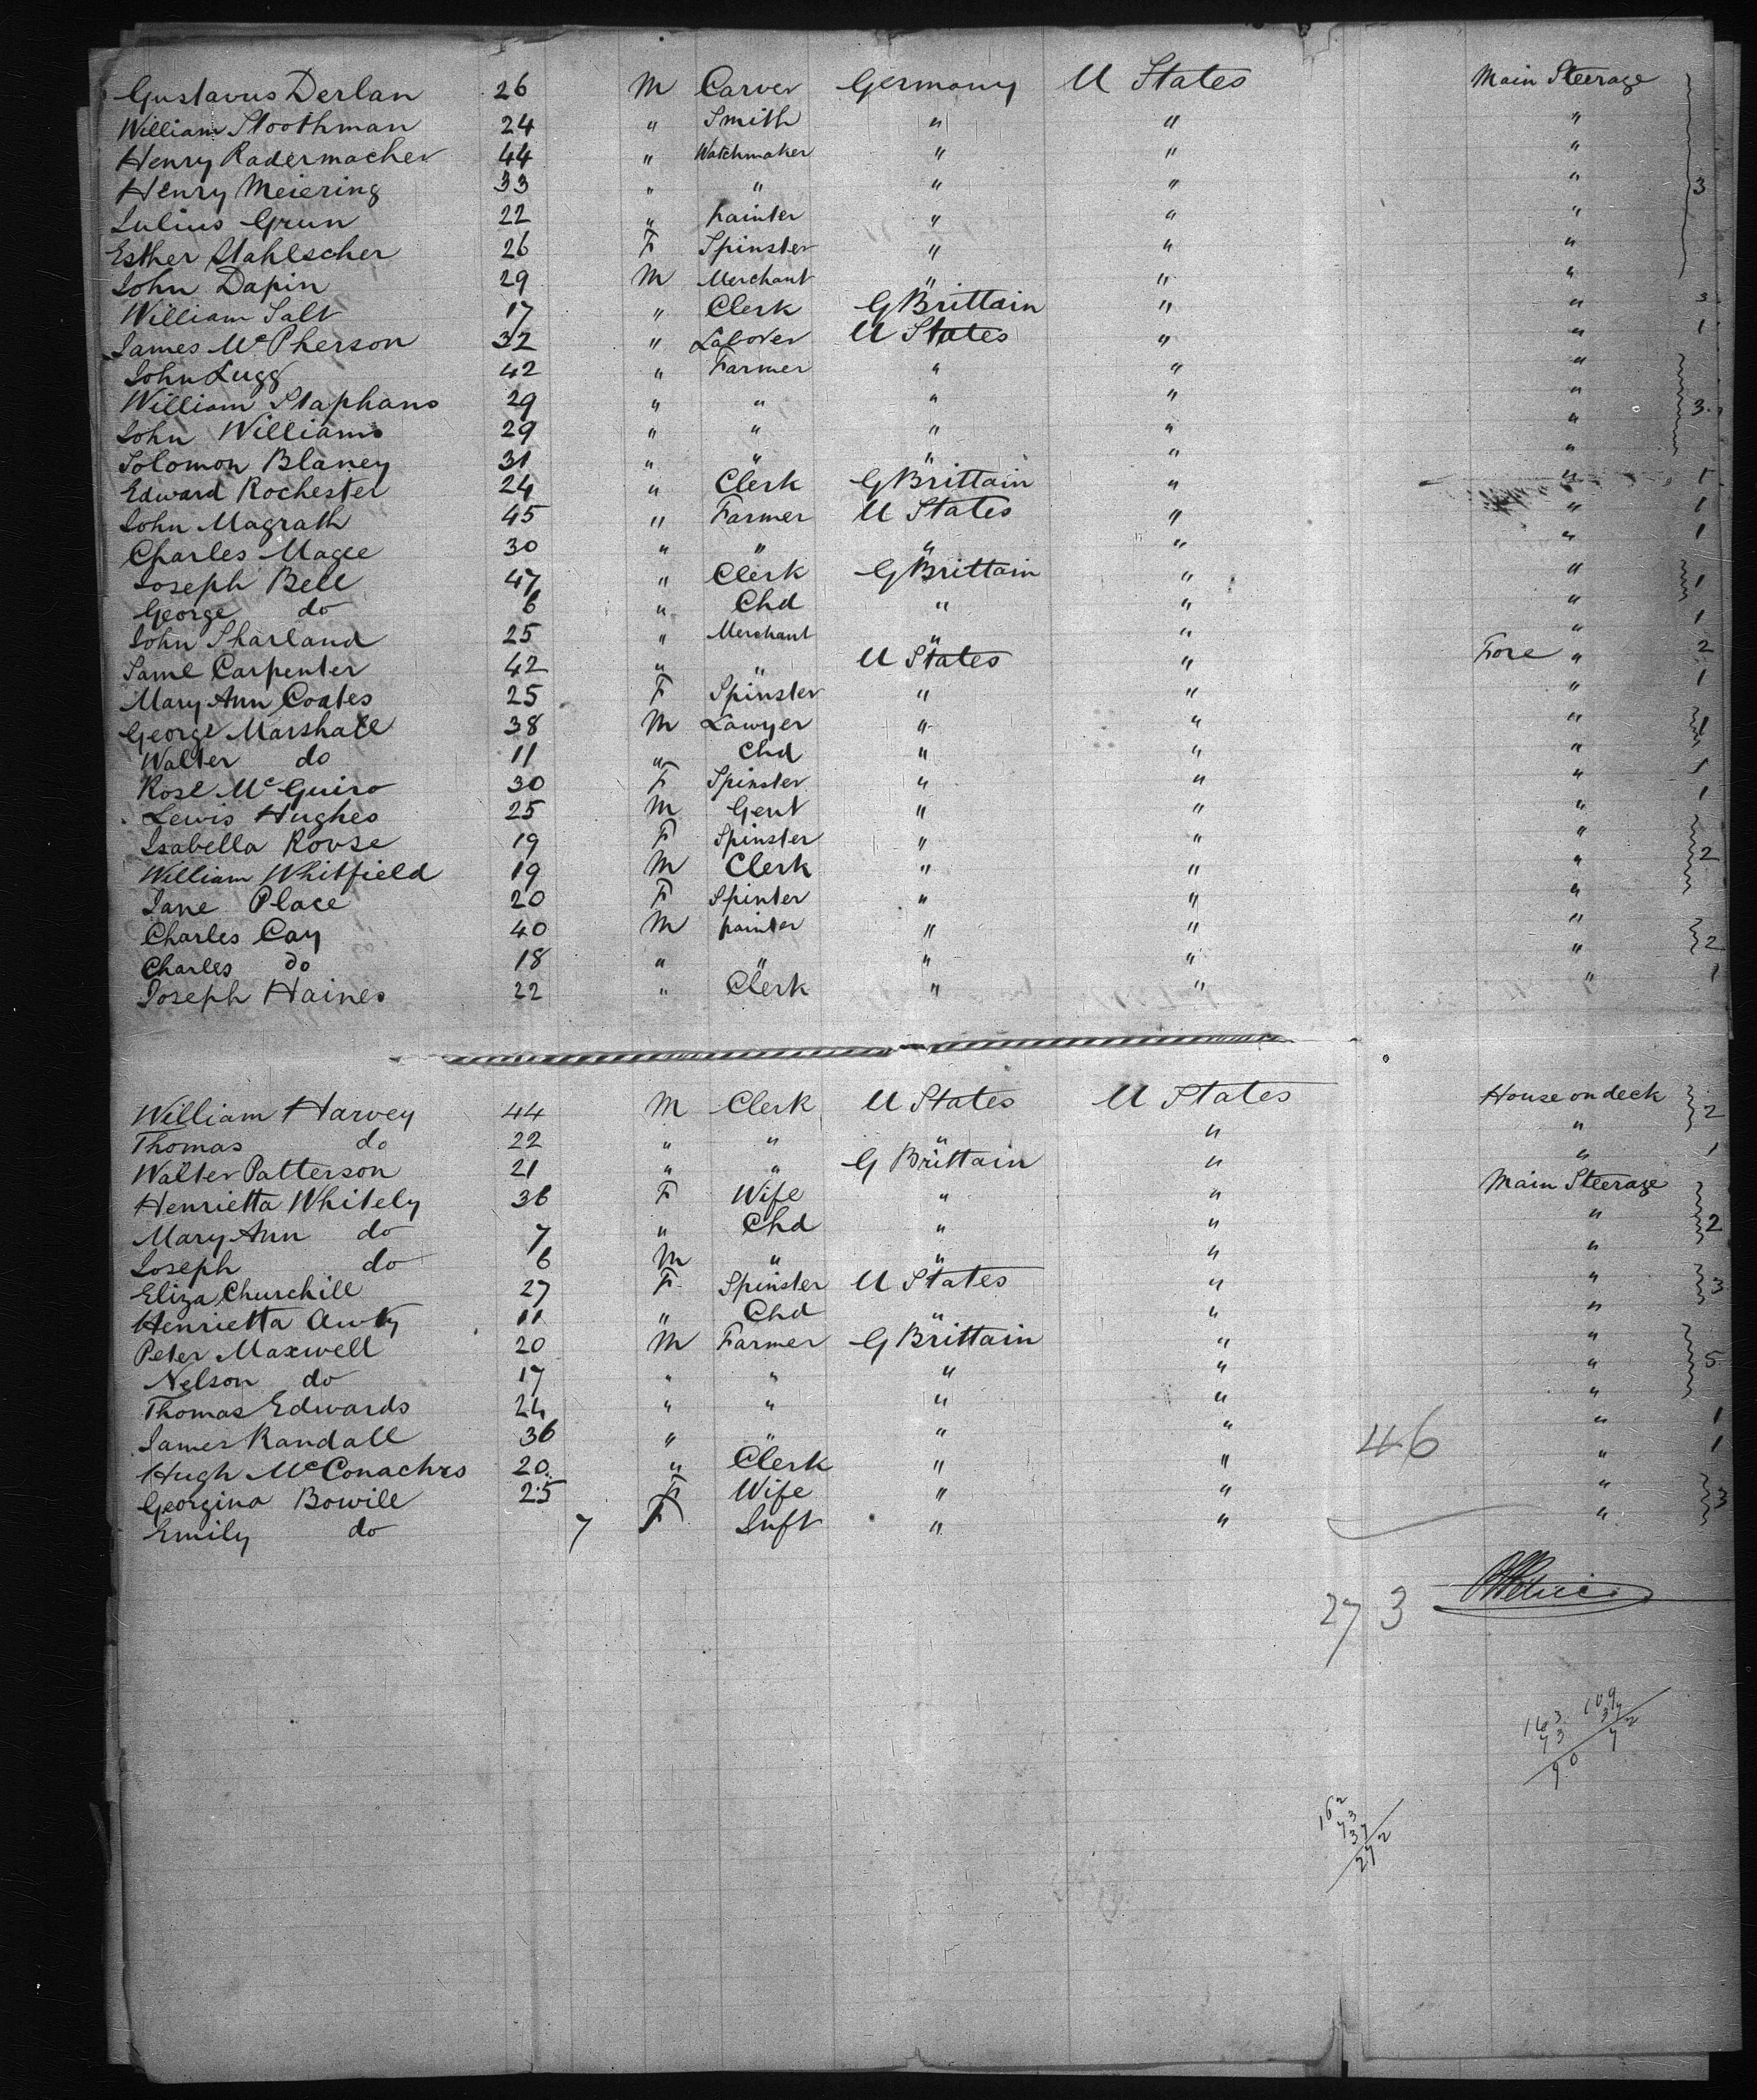 Gustavus Derlan 26 M Carver Germany U States Main Steerage
William Stoothman 24 " Smith " " "
Henry Radermacher 44 " Watchmaker " " "
Henry Meiering 33 " " " " " 3
Julius Grun 22 " painter " " "
Esther Stahlscher 26 F Spinster " " "
John Dapin 29 M Merchant " " "
William Salt 17 " Clerk G Brittain " " 3
James McPherson 32 " Laborer U States " " 1
John Lugg 42 " Farmer " " "
William Staphans 29 " " " " " 3
John Williams 29 " " " " "
Solomon Blaney 31 " " " " "
Edward Rochester 24 " Clerk G Brittain " " 1
John Magrath 45 " Farmer U States " " 1
Charles Magee 30 " " " " " 1
Joseph Bell 47 " Clerk G Brittain " " 1
George do 6 " Chd " " "
John Sharland 25 " Merchant " " " 1
Saml Carpenter 42 " " U States " Fore " 2
Mary Ann Coates 25 F Spinster " " " 1
George Marshall 38 M Lawyer " " " 1
Walter do 11 " Chd " " "
Rose McGuiro 30 F Spinster " " " 1
Lewis Hughes 25 M Gent " " " 1
Isabella Rouse 19 F Spinster " " "
William Whitfield 19 M Clerk " " " 2
Jane Place 20 F Spinter " " "
Charles Cay 40 M painter " " " 2
Charles do 18 " " " " "
Joseph Haines 22 " Clerk " " " 1
William Harvey 44 M Clerk U States U States House on deck 2
Thomas do 22 " " " " "
Walter Patterson 21 " " G Brittain " " 1
Henrietta Whitely 36 F Wife " " Main Steerage
Mary Ann do 7 " Chd " " " 2
Joseph do 6 M " " " "
Eliza Churchill 27 F Spinster U States " " 3
Henrietta Awty 11 " Chd " " "
Peter Maxwell 20 M Farmer G Brittain " "
Nelson do 17 " " " " " 5
Thomas Edwards 24 " " " " "
James Randall 36 " " " " " 1
46
Hugh McConachrs 20 " Clerk " " " 1
Georgina Bowill 25 F Wife " " " 3
Emily do 7 F Inft " " "
273
163 109
73 37
90 72
162
73
37
272